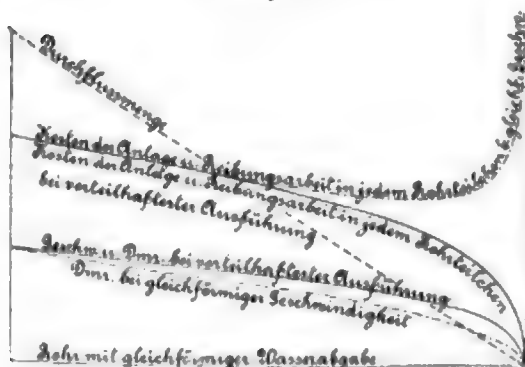 Durchflussmenge
Kosten der Anlage u. Reibungsarbeit in jedem Rohrteilchen b. gleichf. Geschw.
Kosten der Anlage u. Reibungsarbeit in jedem Rohrteilchen
bei vorteilhaftester Ausführung
Geschw. u. Dmr. bei vorteilhaftester Ausführung
Dmr. bei gleichförmiger Geschwindigkeit
Rohr mit gleichförmiger Wasserabgabe